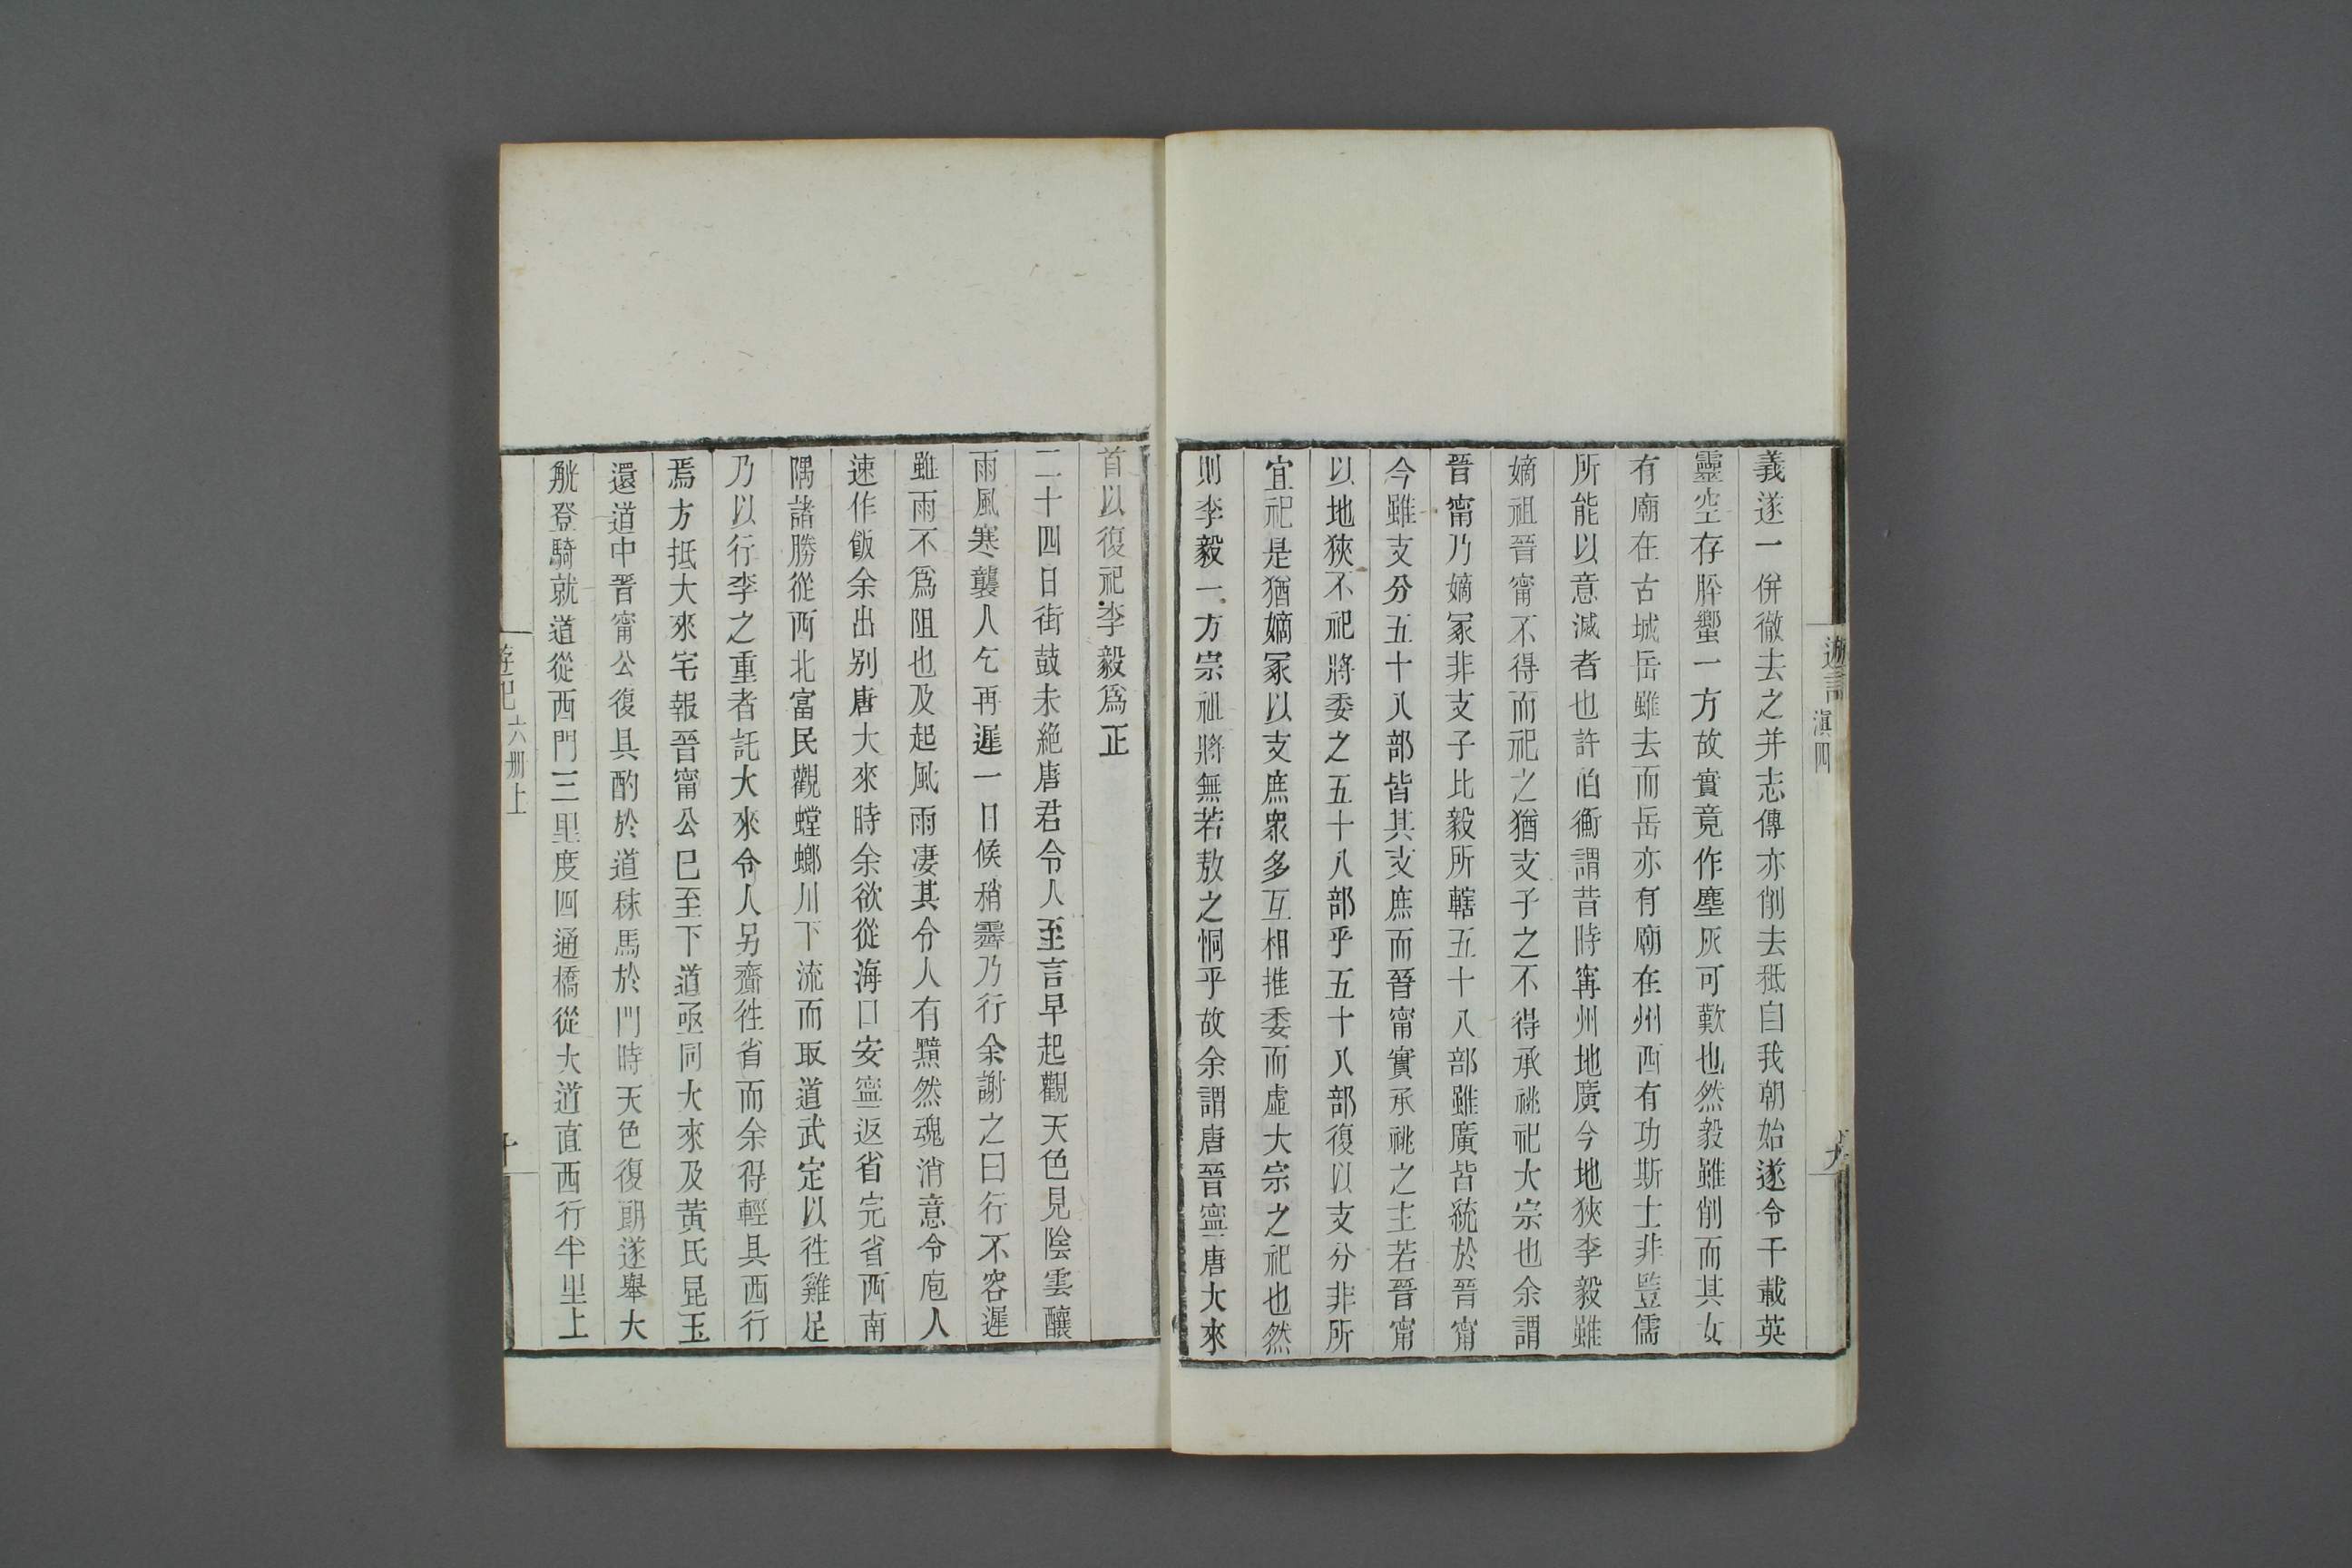 遊記
滇四
九
義遂一併徹去之并志傳亦削去秪自我朝始遂令千載英
靈空存肸蠁一方故實竟作塵灰可歎也然毅雖削而其女
有廟在古城岳雖去而岳亦有廟在州西有功斯土非豎儒
所能以意滅者也許伯衡謂昔時甯州地廣今地狹李毅雖
嫡祖晉甯不得而祀之猶支子之不得承祧祀大宗也余謂
晉甯乃嫡冢非支子比毅所轄五十八部雖廣皆統於晉甯
今雖支分五十八部皆其支庶而晉甯實承祧之主若晉甯
以地狹不祀將委之五十八部乎五十八部復以支分非所
宜祀是猶嫡冢以支庶衆多互相推委而虛大宗之祀也然
則李毅一方宗祖將無若敖之恫乎故余謂唐晉寧唐大來
首以復祀李毅爲正
二十四日街鼓未絶唐君令人至言早起觀天色見陰雲釀
雨風寒襲人乞再遲一日候稍霽乃行余謝之曰行不容遲
雖雨不爲阻也及起風雨凄其令人有黯然魂消意令庖人
速作飯余出别唐大來時余欲從海口安寧返省完省西南
隅諸勝從西北富民觀螳螂川下流而取道武定以徃雞足
乃以行李之重者託大來令人另齎徃省而余得輕具西行
焉方抵大來宅報晉甯公已至下道亟同大來及黃氏昆玉
還道中晉甯公復具酌於道秣馬於門時天色復朗遂舉大
觥登騎就道從西門三里度四通橋從大道直西行半里上
遊記
六册上
十